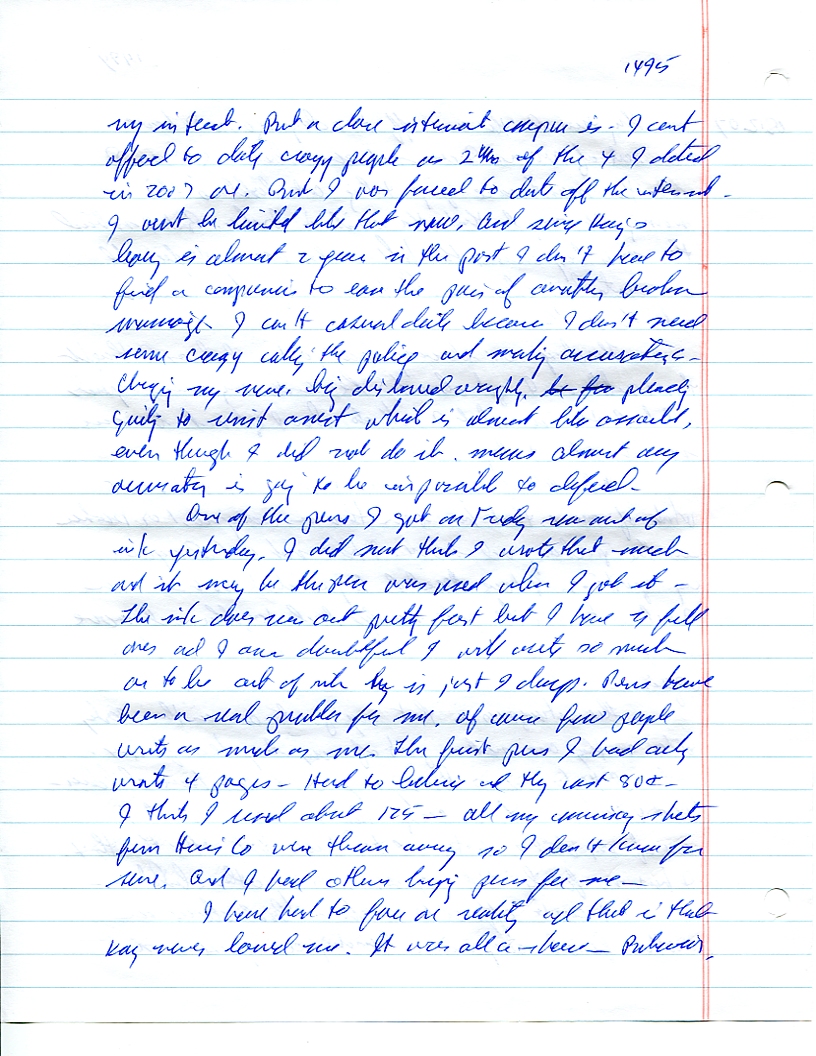 1495
my interest. But a close internet companion is. I can't
afford to date crazy people as 2 of the 4 I dated
in 2007 are. But I was forced to date off the internet.
I won't be limited like that now. And since Kay's
leaving is almost a year in the past I don't have to
find a companion to ease the pain of another broken
marriage. I can't casual date because I don't need
some crazy calling the police and making accusations.
my name. being wrongly. pleading
guilty to resist arrest which is almost like assault,
even though I did not do it. means almost any
accusation is going to be impossible to defend.
One of the pens I got on ran out of
ink yesterday. I did not think I wrote that much
and it may be the pen was used when I got it -
The ink does run out pretty fast but I have full
ones and I am doubtful I will write so much
as to be out of ink is just I Pens have
been a real problem for me. Of course few people
write as much as me. The first pens I had only
wrote 4 pages - Hard to believe and they cost 80¢ -
I think I used about 125 - all my commissary sheets
from Harris Co were thrown away so I don't know for
sure. And I had others buying pens for me -
I have had to face one reality and that is that
Kay never loved me. It was all a sham -